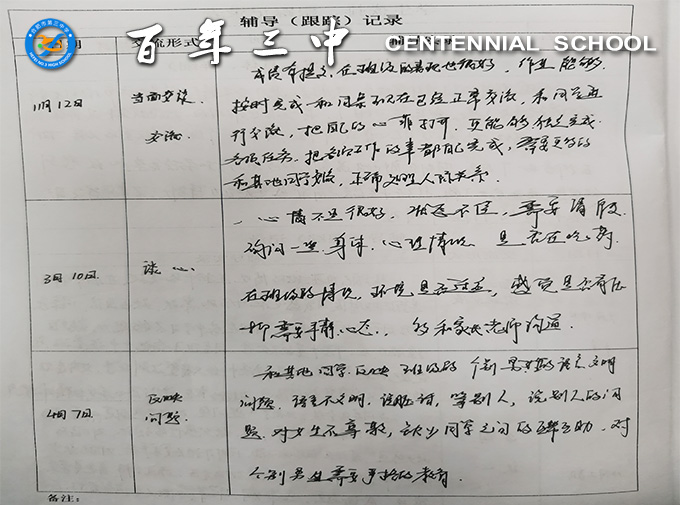 辅导（跟踪）记录
百年三中 CENTENNIAL SCHOOL
期 交流形式
成绩有提升，在班级的表现也很好，作业能够
11月12日 当面交谈 按时完成和同桌 现在已经正常交流，和同学进
交流 行交流，把自己的心扉打开，更能够独立完成
各项任务。把各项工作的事都自己完成，需要更多的
和其他同学 ，正确处理人际关系。
心情不是很好，状态不佳，需要
询问一些身体、心理情况 是否在吃药
3月10日 谈心 在班级的情况，环境是否适应，感觉是否有压
抑 需要平静心态。 和家长老师沟通
和其他同学反映 班级的个别男生的语言文明
4月7日 反映 问题。语言不文明，说脏话，骂别人，说别人的问
问题 题，对女生不尊敬，缺少同学之间的 互助，对
个别男生需要严格的教育
备注：